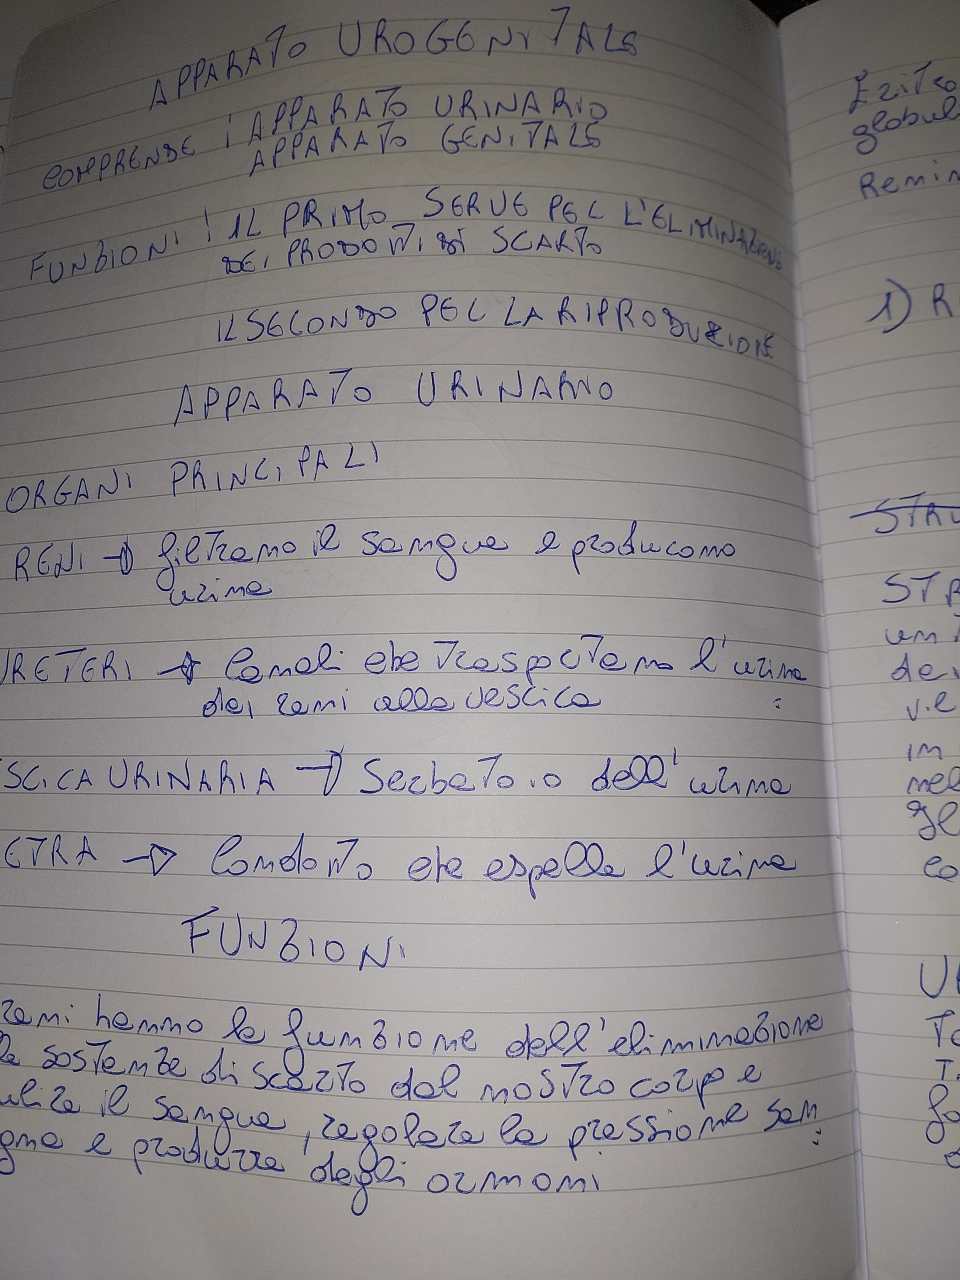 APPARATO UROGENITALE
COMPRENDE : APPARATO URINARIO
APPARATO GENITALE
FUNZIONI : IL PRIMO SERVE PER L'ELIMINAZIONE
DEI PRODOTTI DI SCARTO
IL SECONDO PER LA RIPRODUZIONE
APPARATO URINARIO
ORGANI PRINCIPALI
RENI → filtrano il sangue e producono
urina
URETERI → Canali che trasportano l'urina
dei reni alla vescica
SCICA URINARIA → Serbatoio dell'urina
ETRA → Condotto che espelle l'urina
FUNZIONI
reni hanno la funzione dell'eliminazione
le sostanze di scarto dal nostro corpo e
ulire il sangue, regolare la pressione san
gna e produrre degli ormoni
Eritro
globul
Remin
1) R
STRU
STR
un
dei
vie
in
nel
gl
co
UR
To
T.
fo
d